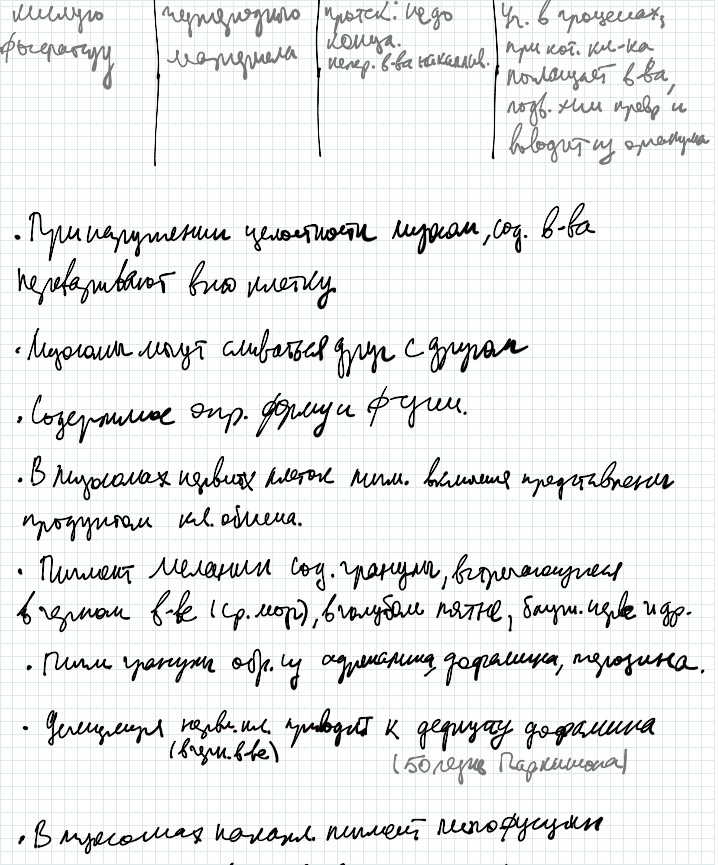 кислую
фосфатазу
чужеродного
материала
протек. не до
конца.
непер. в-ва накаплив.
Уч. в процессах,
при кот. кл-ка
поглощает в-ва,
подв. хим превр и
выводит из организма
• При нарушении целостности лизосом, сод. в-ва
переваривают всю клетку.
• Лизосомы могут сливаться друг с другом
• Содержимое опр. форму и ф-ции.
• В лизосомах нервных клеток пигм. включения представлены
продуктом кл. обмена.
• Пигмент меланин сод. гранулы, встречающиеся
в черном в-ве (ср. мозг), в голубом пятне, блужд. нерве и др.
• Пигм гранулы обр. из адреналина, дофамина, тирозина.
• Дегенерация нервн. кл. приводит к дефициту дофамина
(в черн. в-ве)
(болезнь Паркинсона)
• В лизосомах накапл. пигмент липофусцин